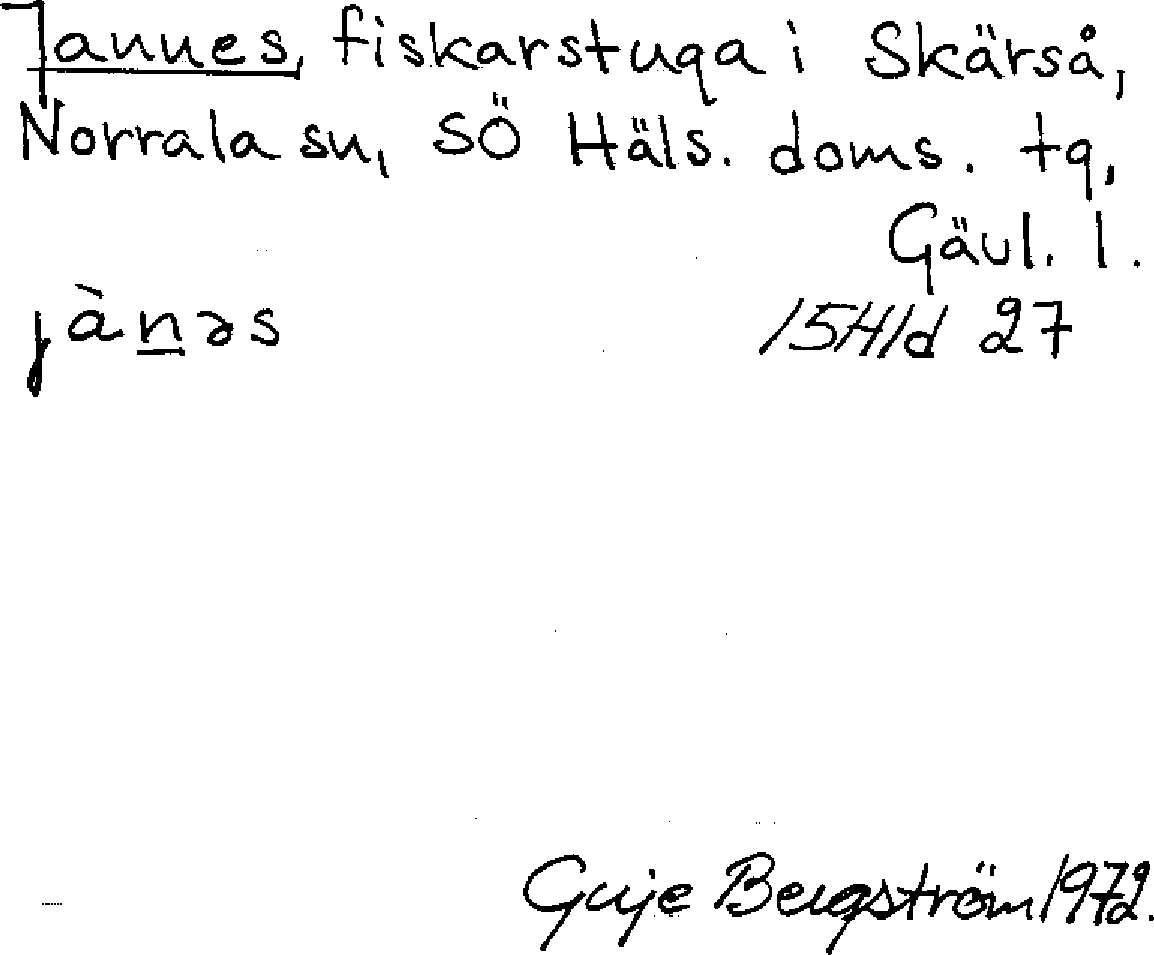 Jannes, fiskarstuga i Skärså,
Norrala sn, SÖ Häls. doms. tg,
Gävl. l.
jànəs
15H1d 27
Guje Bergström 1972.